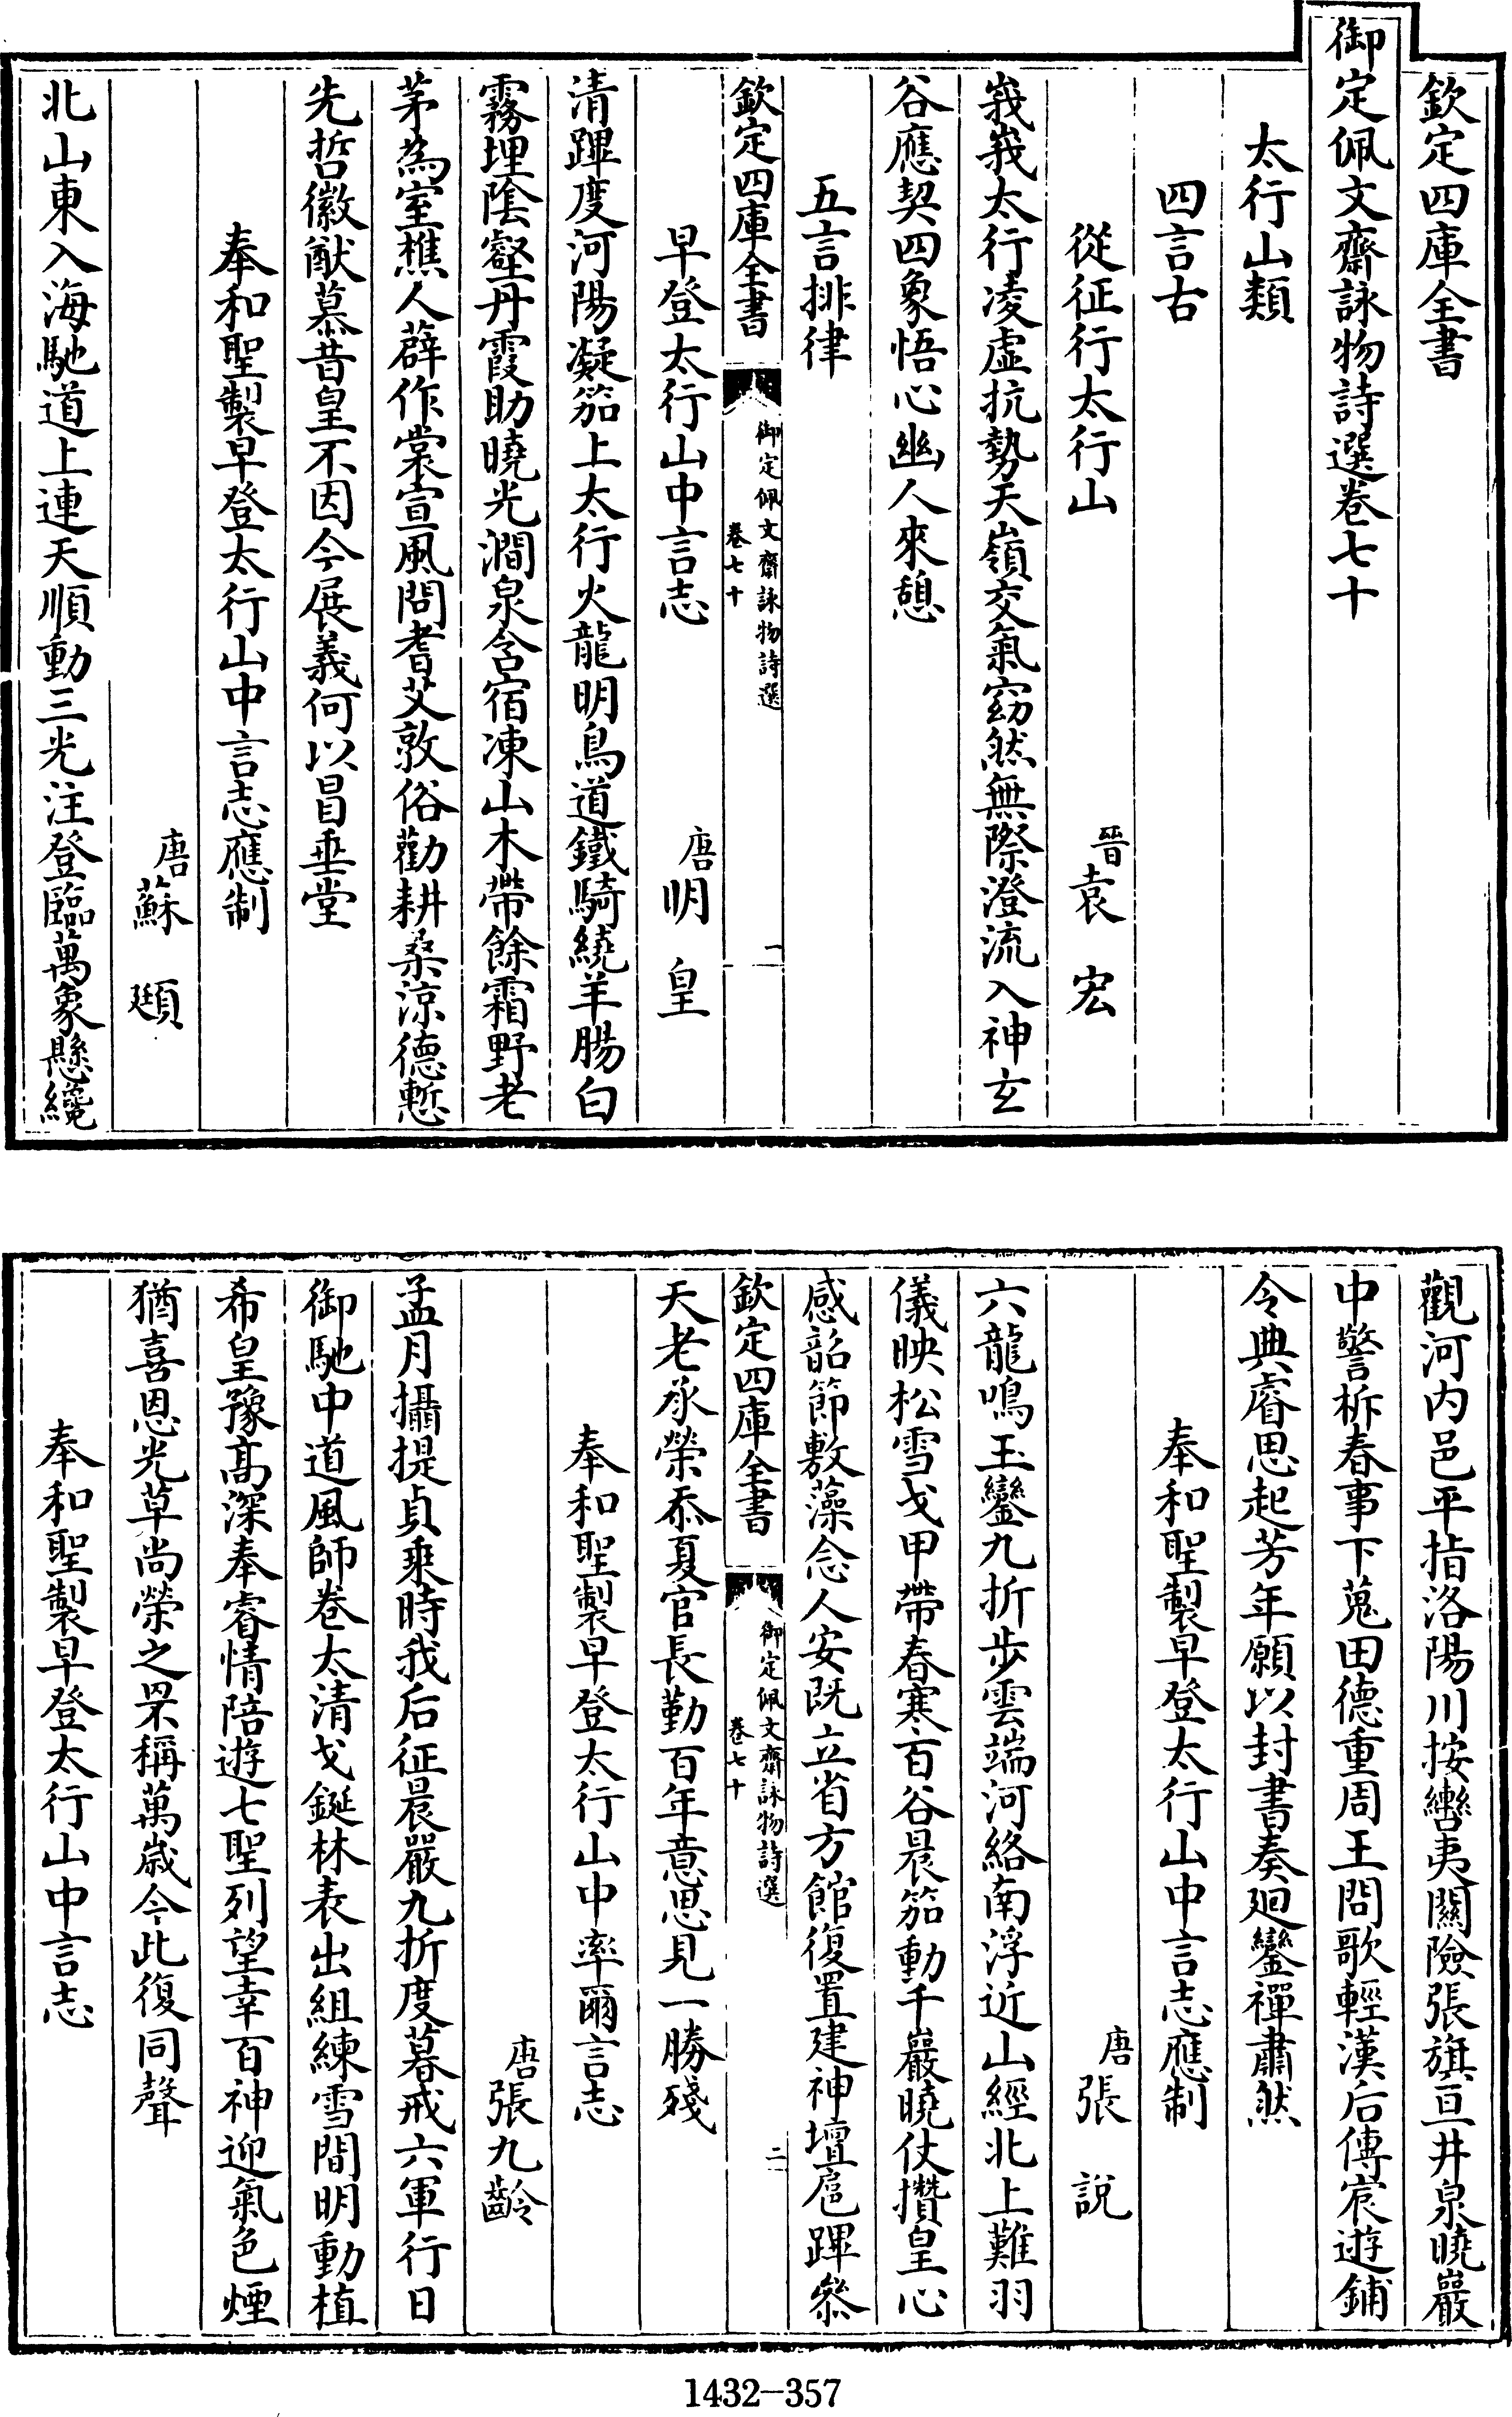 欽定四庫全書
御定佩文齋詠物詩選卷七十
太行山類
四言古
從征行太行山
晉袁宏
峩峩太行凌虛抗勢天嶺交氣窈然無際澄流入神玄
谷應契四象悟心幽人來憩
五言排律
欽定四庫全書
御定佩文齋詠物詩選
卷七十
一
早登太行山中言志
唐明皇
清蹕度河陽凝笳上太行火龍明鳥道鐵騎繞羊腸白
霧埋陰壑丹霞助曉光澗泉含宿凍山木帶餘霜野老
茅為室樵人薜作裳宣風問耆艾敦俗勸耕桑涼德慙
先哲徽猷慕昔皇不因今展義何以冒垂堂
奉和聖製早登太行山中言志應制
唐蘇頲
北山東入海馳道上連天順動三光注登臨萬象懸纔
觀河內邑平指洛陽川按轡夷關險張旗亘井泉曉巖
中警柝春事下蒐田德重周王問歌輕漢后傳宸遊鋪
令典睿思起芳年願以封書奏廻鑾禪肅然
奉和聖製早登太行山中言志應制
唐張說
六龍鳴玉鑾九折步雲端河絡南浮近山經北上難羽
儀映松雪戈甲帶春寒百谷晨笳動千巖曉仗攢皇心
感韶節敷藻念人安既立省方館復置建神壇扈蹕叅
欽定四庫全書
御定佩文齋詠物詩選
卷七十
二
天老承榮忝夏官長勤百年意思見一勝殘
奉和聖製早登太行山中率爾言志
唐張九齡
孟月攝提貞乘時我后征晨嚴九折度暮戒六軍行日
御馳中道風師卷太清戈鋋林表出組練雪間明動植
希皇豫高深奉睿情陪遊七聖列望幸百神迎氣色煙
猶喜恩光草尚榮之罘稱萬歲今此復同聲
奉和聖製早登太行山中言志
1432-357